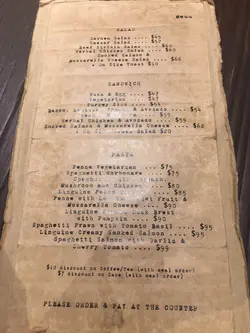 SALAD
Garden Salad .... $45
Caesar Salad .... $52
Beef Sirloin Salad .... $60
Herbal Chicken Salad .... $68
Smoked Salmon &
Mozzarella Cheese Salad .... $68
+ On Side Toast $10
SANDWICH
Tuna & Egg .... $47
Vegetarian .... $47
Turkey Club .... $54
& Avocado .... $54
.... $59
Herbal Chicken & Avocado .... $59
Smoked Salmon & Mozzarella Cheese .... $62
Side Salad $20
PASTA
Penne Vegetarian .... $75
Spaghetti Carbonara .... $75
Mushroom and Chicken .... $80
Linguine .... $85
Penne with Fruit &
Mozzarella Cheese .... $90
Linguine Duck Breast
with Pumpkin .... $90
Spaghetti Prawn with Tomato Basil .... $95
Linguine Creamy Smoked Salmon .... $95
Spaghetti Salmon with Garlic &
Cherry Tomato .... $99
$10 discount on Coffee/Tea (with meal order)
$7 discount on Cake (with meal order)
PLEASE ORDER & PAY AT THE COUNTER